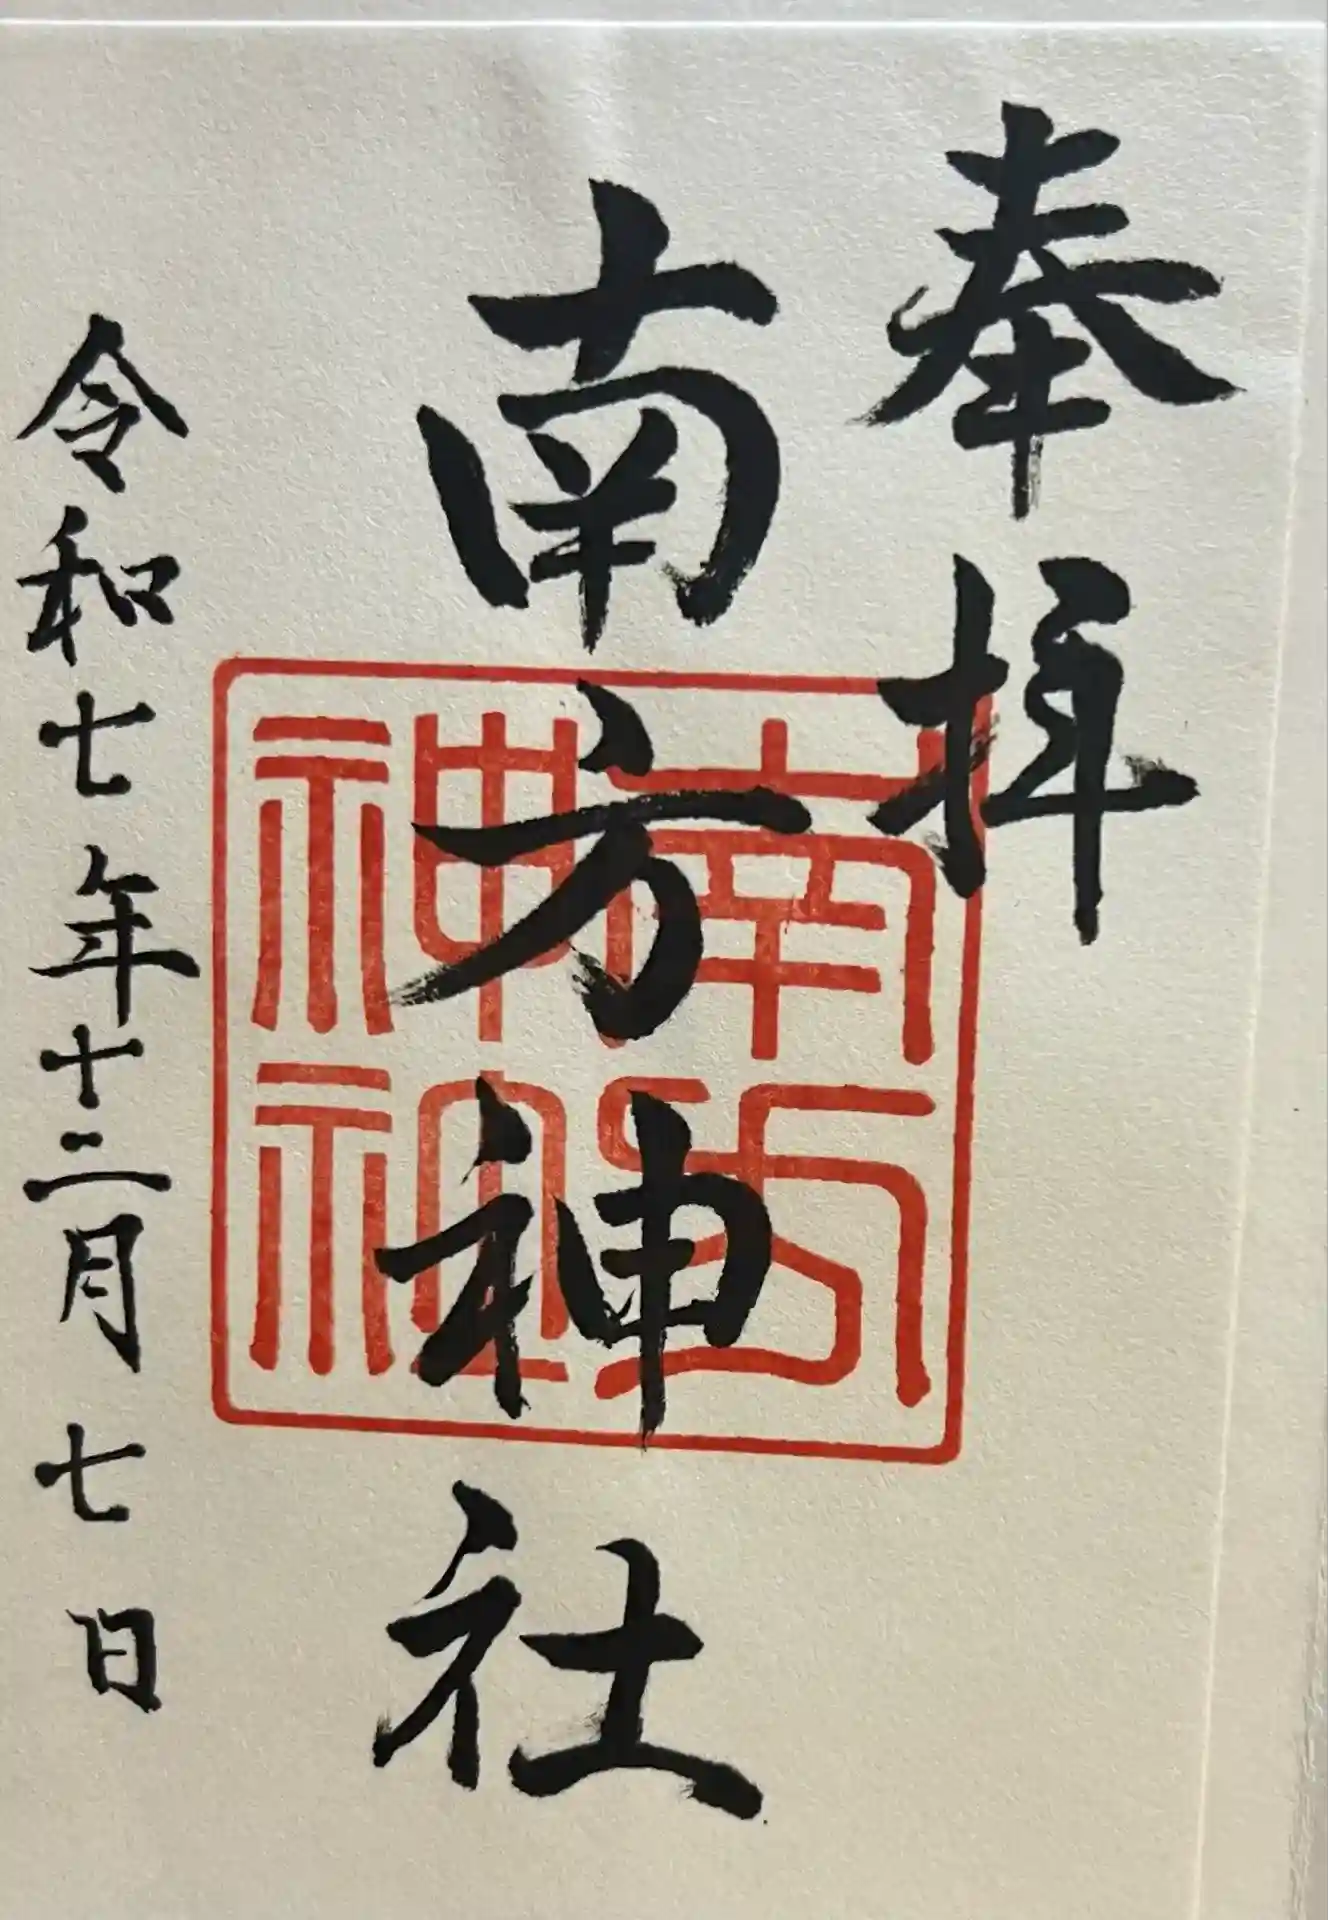 奉拝
南方神社
南方
神社
令和七年十二月七日